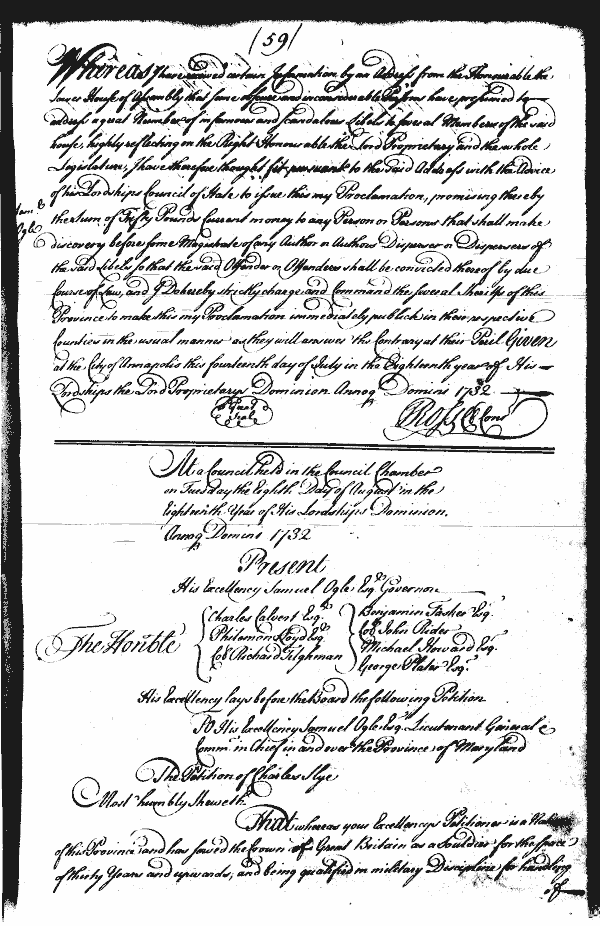 (59)
Whereas I have received certain Information by an Address from the Honourable the
Lower House of Assembly that some obscure and inconsiderable Persons have presumed to
address a great Number of infamous and scandalous Libels to several Members of the said
house, highly reflecting on the Right Honourable the Lord Proprietary and the whole
Legislature, I have therefore thought fit pursuant to the Said Address with the Advice
of his Lordships Council of State to issue this my Proclamation, promising thereby
Sam: 
Ogle
the Sum of Fifty Pounds Current money to any Person or Persons that shall make
discovery before some Magistrate of any Author or Authors Disperser or Dispersers of
the said Libels so that the said Offender or Offenders shall be convicted thereof by due
Course of Law, and I Do hereby strictly charge and Command the several Sheriffs of this
Province to make this my Proclamation immediately publick in their respective
Counties in the usual manner as they will answer the Contrary at their Peril Given
at the City of Annapolis this fourteenth day of July in the Eighteenth year of His
Lordships the Lord Proprietarys Dominion Annoq Domini 1732
Great
Seal
Ross Cl Con
At a Council held in the Council Chamber
on Tuesday the Eighth Day of August in the
Eighteenth Year of His Lordships Dominion
Annoq Domini 1732
Present
His Excellency Samuel Ogle Esqr Governor
The Honble
Charles Calvert Esqr
Philemon Lloyd Esqr
Col Richard Tilghman
Benjamin Tasker Esqr
Col John Rider
Michael Howard Esqr
George Plater Esqr
His Excellency lays before the Board the following Petition
To His Excellency Samuel Ogle Esqr Lieutenant General &
Comm in Chief in and over the Province of Maryland
The Petition of Charles Slye
Most humbly Sheweth
That whereas your Excellencys Petitioner is a Native
of this Province and has served the Crown of Great Britain as a Souldier for the space
of thirty Years and upwards, and being qualified in military Discipline for handling
of